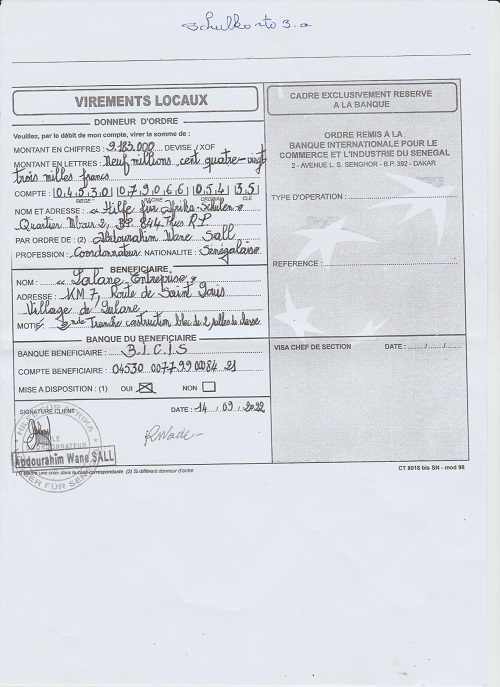 Schulkonto 3.a
VIREMENTS LOCAUX
DONNEUR D'ORDRE
Veuillez, par le débit de mon compte, virer la somme de :
MONTANT EN CHIFFRES : 9.183.000 DEVISE / XOF
MONTANT EN LETTRES : Neuf millions cent quatre-vingt
trois milles francs
COMPTE : 04530 079066 054 35
SIEGE RACINE ORDINAL CLE
NOM ET ADRESSE : "Hilfe für Afrika-Schulen"
Quartier Mbour 2, BP. 844 Thies RP
PAR ORDRE DE : (2) Abdourahim Wane Sall
PROFESSION : Coordonnateur NATIONALITE : Sénégalaise
BENEFICIAIRE
NOM : " Lalane Entreprise "
ADRESSE : KM 7, Route de Saint Louis
Village de Lalane
MOTIF : 2nde Tranche construction bloc de 2 salles de classe
BANQUE DU BENEFICIAIRE
BANQUE BENEFICIAIRE : B.I.C.I.S
COMPTE BENEFICIAIRE : 04530 007799 00084 21
MISE A DISPOSITION : (1) OUI NON
SIGNATURE CLIENT DATE : 14 09 2022
Abdourahim Wane SALL
(1) Mettre une croix dans la case correspondante (2) Si différent donneur d'ordre
CADRE EXCLUSIVEMENT RESERVE
A LA BANQUE
ORDRE REMIS A LA
BANQUE INTERNATIONALE POUR LE
COMMERCE ET L'INDUSTRIE DU SENEGAL
2 - AVENUE L. S. SENGHOR - B.P. 392 - DAKAR
TYPE D'OPERATION :
REFERENCE :
VISA CHEF DE SECTION DATE : / /
CT 8018 bis SN - mod 98